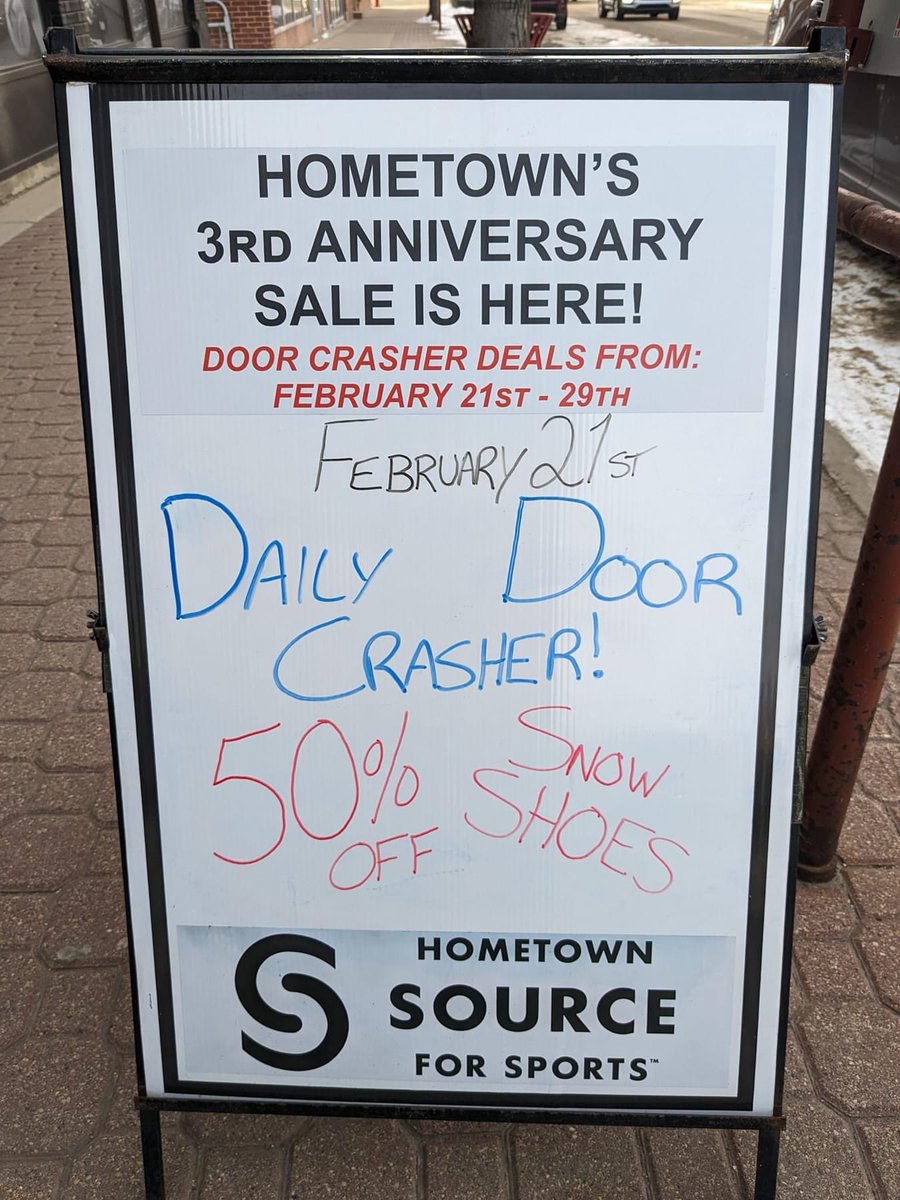 HOMETOWN'S
3RD ANNIVERSARY
SALE IS HERE!
DOOR CRASHER DEALS FROM:
FEBRUARY 21ST - 29TH
FEBRUARY 21ST
DAILY DOOR
CRASHER!
50% OFF
SNOW
SHOES
HOMETOWN
SOURCE
FOR SPORTS™